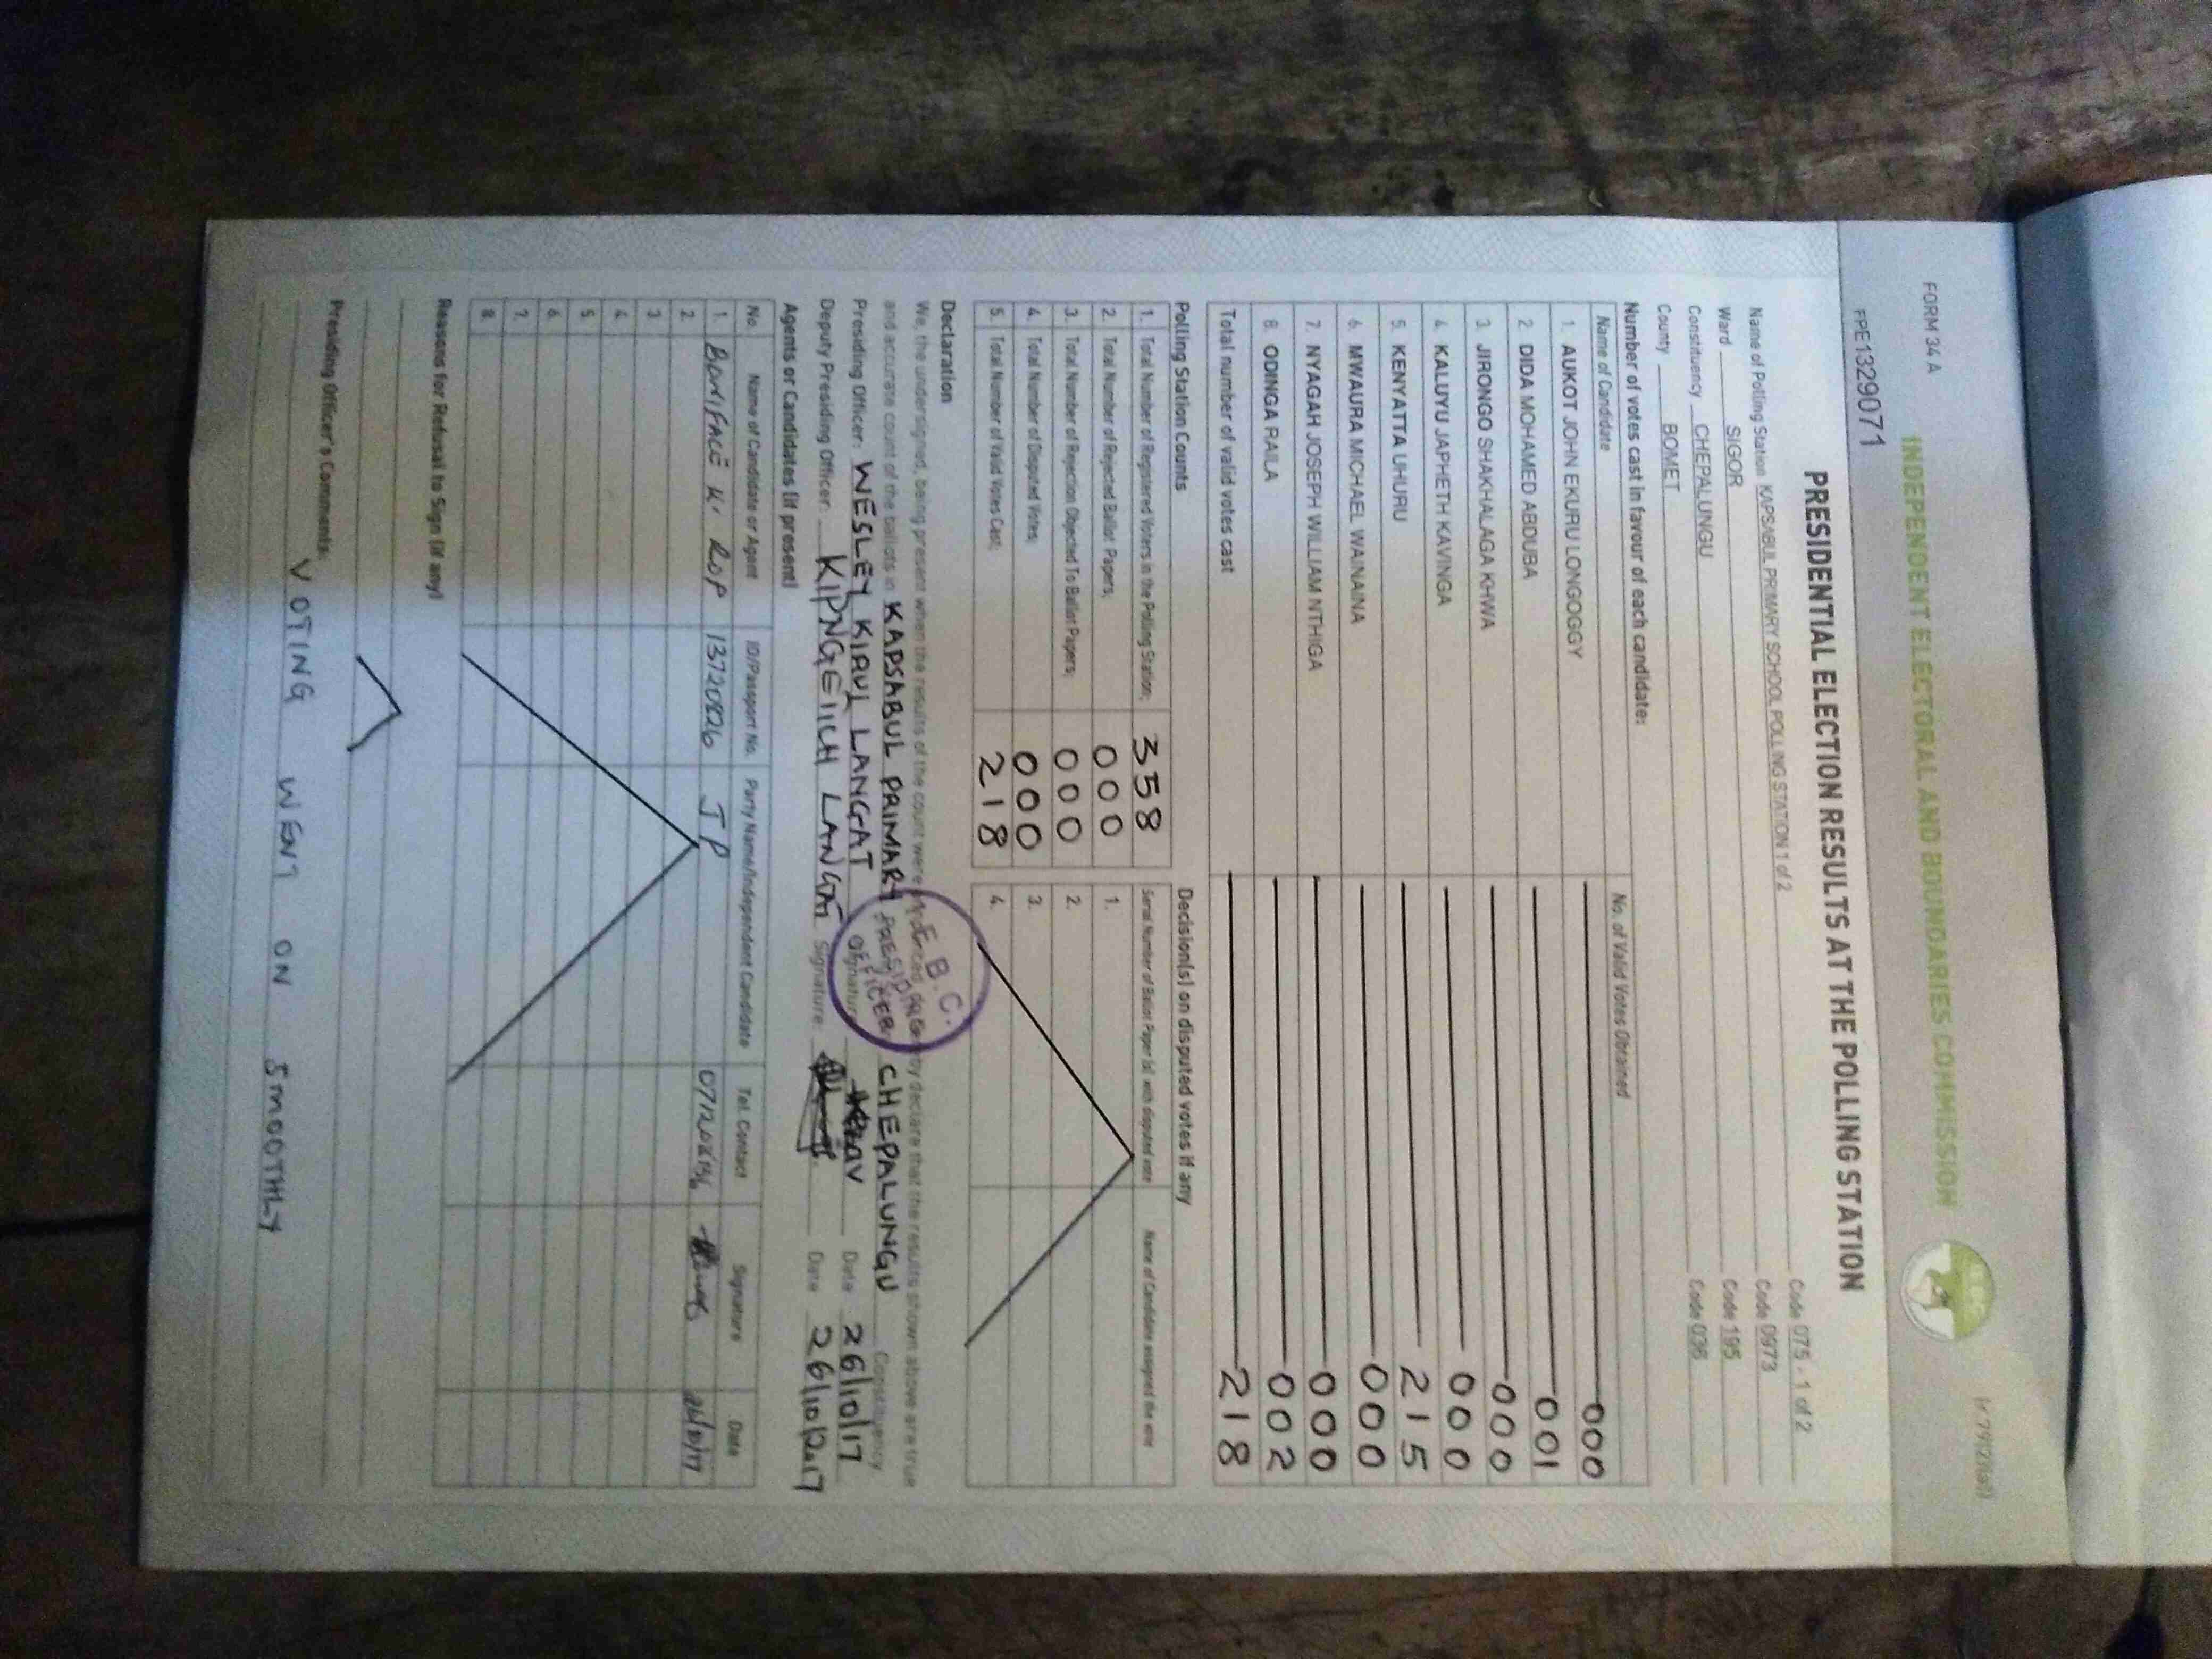 FORM 34 A
INDEPENDENT ELECTORAL AND BOUNDARIES COMMISSION
FPE1329071
PRESIDENTIAL ELECTION RESULTS AT THE POLLING STATION
Name of Polling Station KAPSABUL PRIMARY SCHOOL POLLING STATION 1 of 2 Code 075 - 1 of 2
Ward SIGOR Code 0973
Constituency CHEPALUNGU Code 195
County BOMET Code 036
Number of votes cast in favour of each candidate:
Name of Candidate No. of Valid Votes Obtained
1. AUKOT JOHN EKURU LONGOGGY 000
2 DIDA MOHAMED ABDUBA 001
3. JIRONGO SHAKHALAGA KHWA 000
4. KALUYU JAPHETH KAVINGA 000
5. KENYATTA UHURU 215
6 MWAURA MICHAEL WAINAINA 000
7. NYAGAH JOSEPH WILLIAM NTHIGA 000
8. ODINGA RAILA 002
Total number of valid votes cast 218
Polling Station Counts
1. Total Number of Registered Voters in the Polling Station; 358
2. Total Number of Rejected Ballot Papers; 000
3. Total Number of Rejection Objected To Ballot Papers; 000
4. Total Number of Disputed Votes; 000
5. Total Number of Valid Votes Cast; 218
Decision(s) on disputed votes if any
Serial Number of Ballot Paper (s) with disputed vote Name of Candidate assigned the vote
1.
2.
3.
4.
Declaration
We, the undersigned, being present when the results of the count were announced, do hereby declare that the results shown above are true
and accurate count of the ballots in KAPSABUL PRIMARY CHEPALUNGU Constituency
Presiding Officer: WESLEY KIRUI LANGGAT Signature Date 26/10/17
Deputy Presiding Officer: KIPNGEIICH LANGAT Signature: Date 26/10/2017
I.E.B.C.
PRESIDING
OFFICER
Agents or Candidates (if present)
No. Name of Candidate or Agent ID/Passport No. Party Name/Independent Candidate Tel. Contact Signature Date
1. BONIFACE K. ROP 13720826 JP 26/10/17
2.
3
4.
5.
6.
7.
8.
Reasons for Refusal to Sign (if any)
Presiding Officer's Comments:
VOTING WENT ON SMOOTHLY